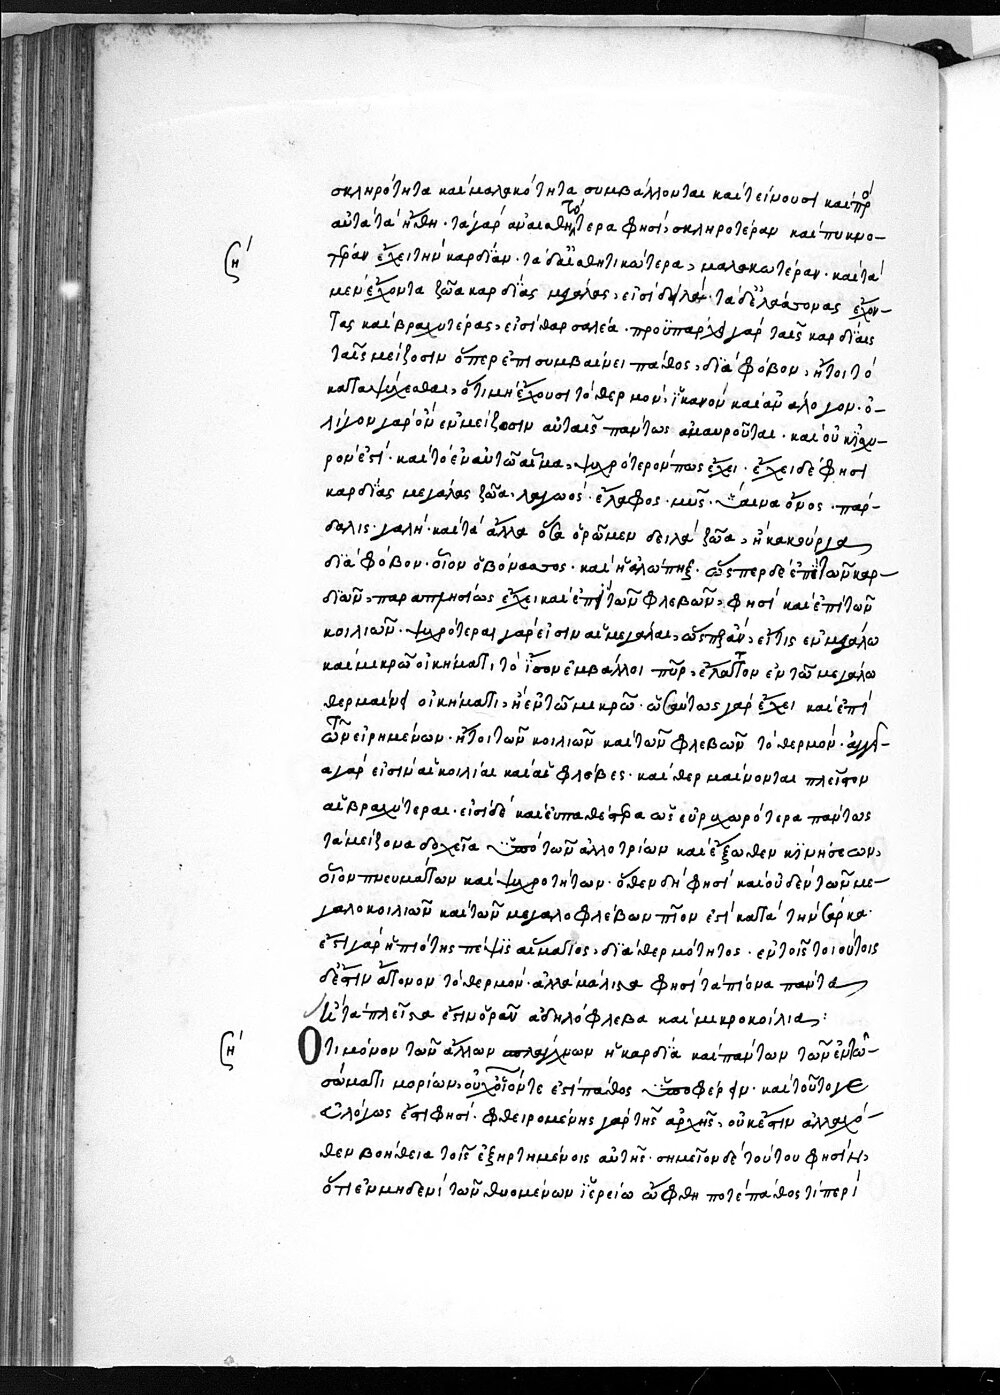 σκληρότητα καὶ μαλακότητα συμβάλλονται καὶ τείνουσι καὶ πρὸ
αὐτὰ τὰ ἤθη· τὰ γὰρ ἀναισθητότερα φησὶ, σκληροτέραν καὶ πυκνο-
τέραν ἔχει τὴν καρδίαν· τὰ δὲ αἰσθητικώτερα, μαλακωτέραν· καὶ τὰ
μὲν ἔχοντα ζῶα καρδίας μεγάλας, εἰσὶ δειλὰ· τὰ δὲ ἐλάσσονας ἔχον-
τας καὶ βραχυτέρας, εἰσὶ θαρσαλέα· προϋπάρχει γὰρ ταῖς καρδίαις
ταῖς μείζοσιν ὅπερ ἐπισυμβαίνει πάθος, διὰ φόβον, ἤτοι τὸ
καταψύχεσθαι, ὅτι μὴ ἔχουσι τὸ θερμὸν, ἱκανὸν καὶ ἀνάλογον· ὀ-
λίγον γὰρ ὂν ἐν μείζοσιν αὐταῖς πάντως ἀμαυροῦται· καὶ οὐκ ἰσχυ-
ρόν ἐστι· καὶ τὸ ἐν αὐτῶ αἷμα, ψυχρότερόν πως ἔχει· ἔχει δέ φησι
καρδίας μεγάλας ζῶα· λαγωός· ἔλαφος· μῦς· ὕαινα ὄνος· πάρ-
δαλις· γαλῆ· καὶ τὰ ἄλλα ὅσα ὁρῶμεν δειλὰ ζῶα, ἢ κακοῦργα
διὰ φόβον· οἷον ὁ βόνασσος· καὶ ἡ ἀλώπηξ· ὥσπερ δὲ ἐπὶ τῶν καρ-
διῶν, παραπλησίως ἔχει καὶ ἐπὶ τῶν φλεβῶν, φησὶ καὶ ἐπὶ τῶν
κοιλιῶν· ψυχρότεραι γάρ εἰσιν αἱ μεγάλαι, ὥσπερ ἂν, εἴ τις ἐν μεγάλω
καὶ μικρῶ οἰκήματι, τὸ ἴσον ἐμβάλλοι πῦρ, ἔλαττον ἐν τῶ μεγάλω
θερμαίνει οἰκήματι, ἢ ἐν τῶ μικρῶ· ὡσαύτως γὰρ ἔχει καὶ ἐπὶ
τῶν εἰρημένων· ἤτοι τῶν κοιλιῶν καὶ τῶν φλεβῶν τὸ θερμόν· ἀγγεῖ-
α γάρ εἰσιν αἱ κοιλίαι καὶ αἱ φλέβες· καὶ θερμαίνονται πλεῖστον
αἱ βραχύτεραι· εἰσὶ δὲ καὶ εὐπαθέστερα ὡς εὐρυχωρότερα πάντως
τὰ μείζονα ἀγγεῖα ὑπὸ τῶν ἀλλοτρίων καὶ ἔξωθεν κινήσεων,
οἷον πνευμάτων καὶ ψυχροτήτων· ὅθεν δὴ φησὶ καὶ οὐδὲν τῶν με-
γαλοκοιλιῶν καὶ τῶν μεγαλοφλέβων πῖον ἐστὶ κατὰ τὴν σάρκα·
ἔστι γὰρ ἡ πιότης πέψις αἵματος, διὰ θερμότητος· ἐν τοῖς τοιούτοις
δέ ἐστιν ἄτονον τὸ θερμόν· ἀλλὰ μάλιστα φησὶ τὰ πίονα πάντα
ἢ τὰ πλεῖστα ἔστιν ὁρᾶν ἀδηλόφλεβα καὶ μικροκοίλια:
Ὅτι μόνον τῶν ἄλλων σπλάγχνων ἡ καρδία καὶ πάντων τῶν ἐν τῶ
σώματι μορίων, οὐχ οἷόντε ἐστὶ πάθος ὑποφέρειν· καὶ τοῦτό γε
εὐλόγως ἐστὶ φησί· φθειρομένης γὰρ τῆς ἀρχῆς, οὐκ ἔστιν ἀλλαχό-
θεν βοήθεια τοῖς ἐξηρτημένοις αὐτῆς· σημεῖον δὲ τούτου φησὶν,
ὅτι ἐν μηδενὶ τῶν θυομένων ἱερείω ὤφθη ποτὲ πάθος τι περὶ